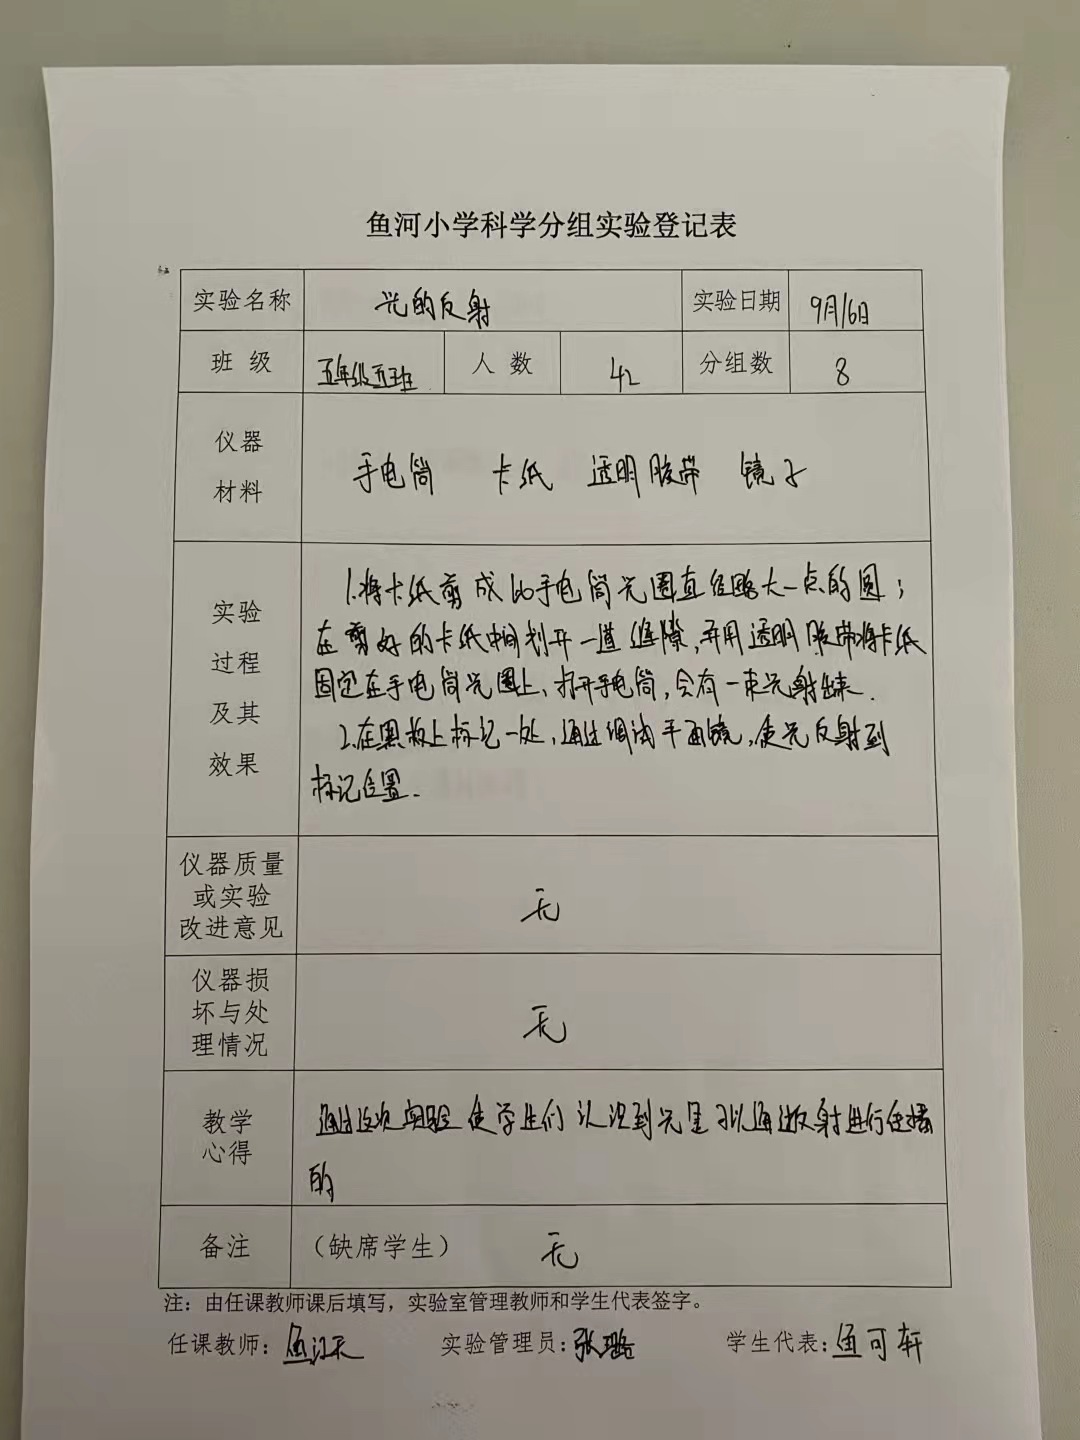 鱼河小学科学分组实验登记表
实验名称 光的反射 实验日期 9月16日
班 级 五年级五班 人 数 42 分组数 8
仪器
材料
手电筒 卡纸 透明胶带 镜子
实验
过程
及其
效果
1.将卡纸剪成比手电筒光圈直径略大一点的圆；
在剪好的卡纸中间划开一道缝隙，并用透明胶带将卡纸
固定在手电筒光圈上，打开手电筒，会有一束光射出来.
2.在黑板上标记一处，通过调试平面镜，使光反射到
标记位置.
仪器质量
或实验
改进意见
无
仪器损
坏与处
理情况
无
教学
心得
通过这次实验使学生们认识到光是可以通过反射进行传播
的
备注 （缺席学生） 无
注：由任课教师课后填写，实验室管理教师和学生代表签字。
任课教师：鱼 实验管理员：张璐 学生代表：鱼可轩